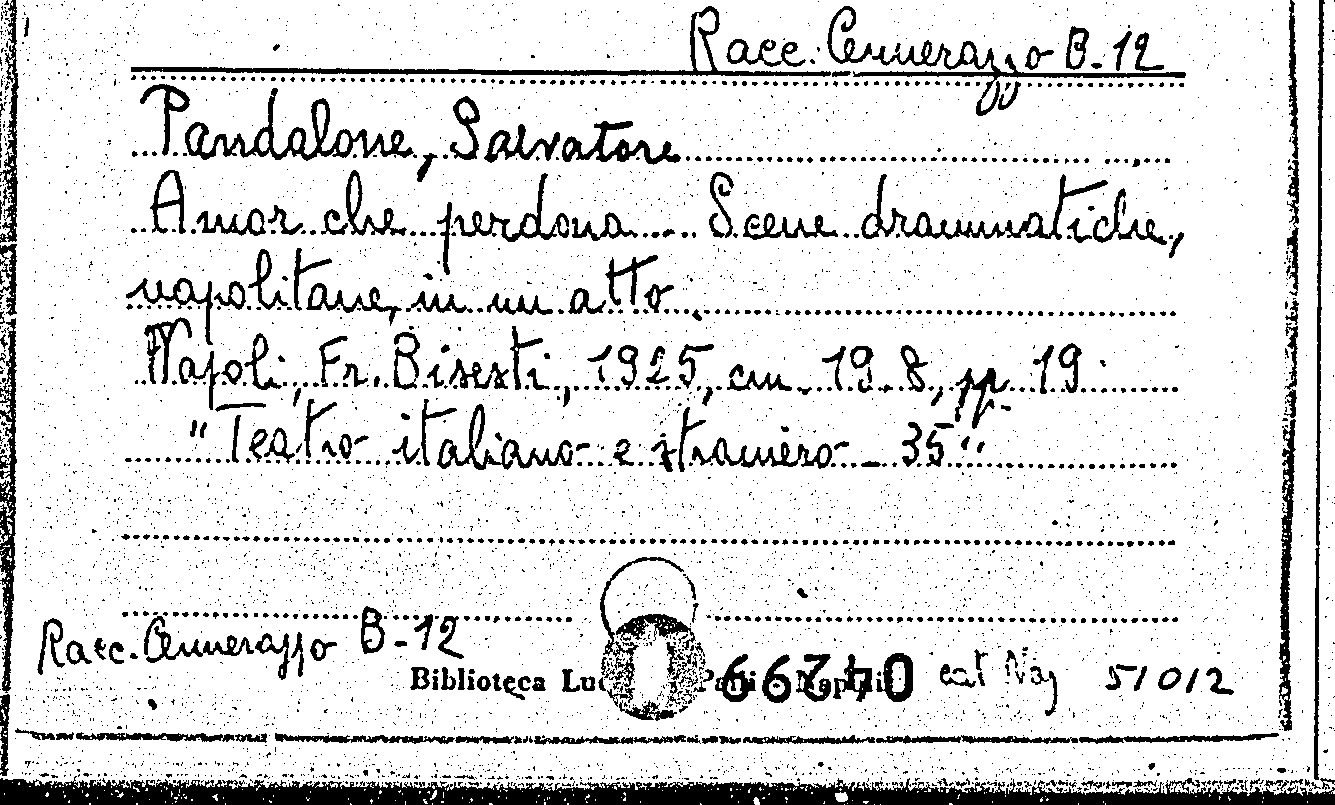 Racc. Cennerazzo B-12
Pandalone, Salvatore
Amor che perdona - Scene drammatiche,
napolitane, in un atto.
Napoli, Fr. Bisesti, 1925, cm. 19.8, pp. 19.
"Teatro italiano e straniero - 35"
Racc. Cennerazzo B-12
Biblioteca Luc Napoli cat Na 51012